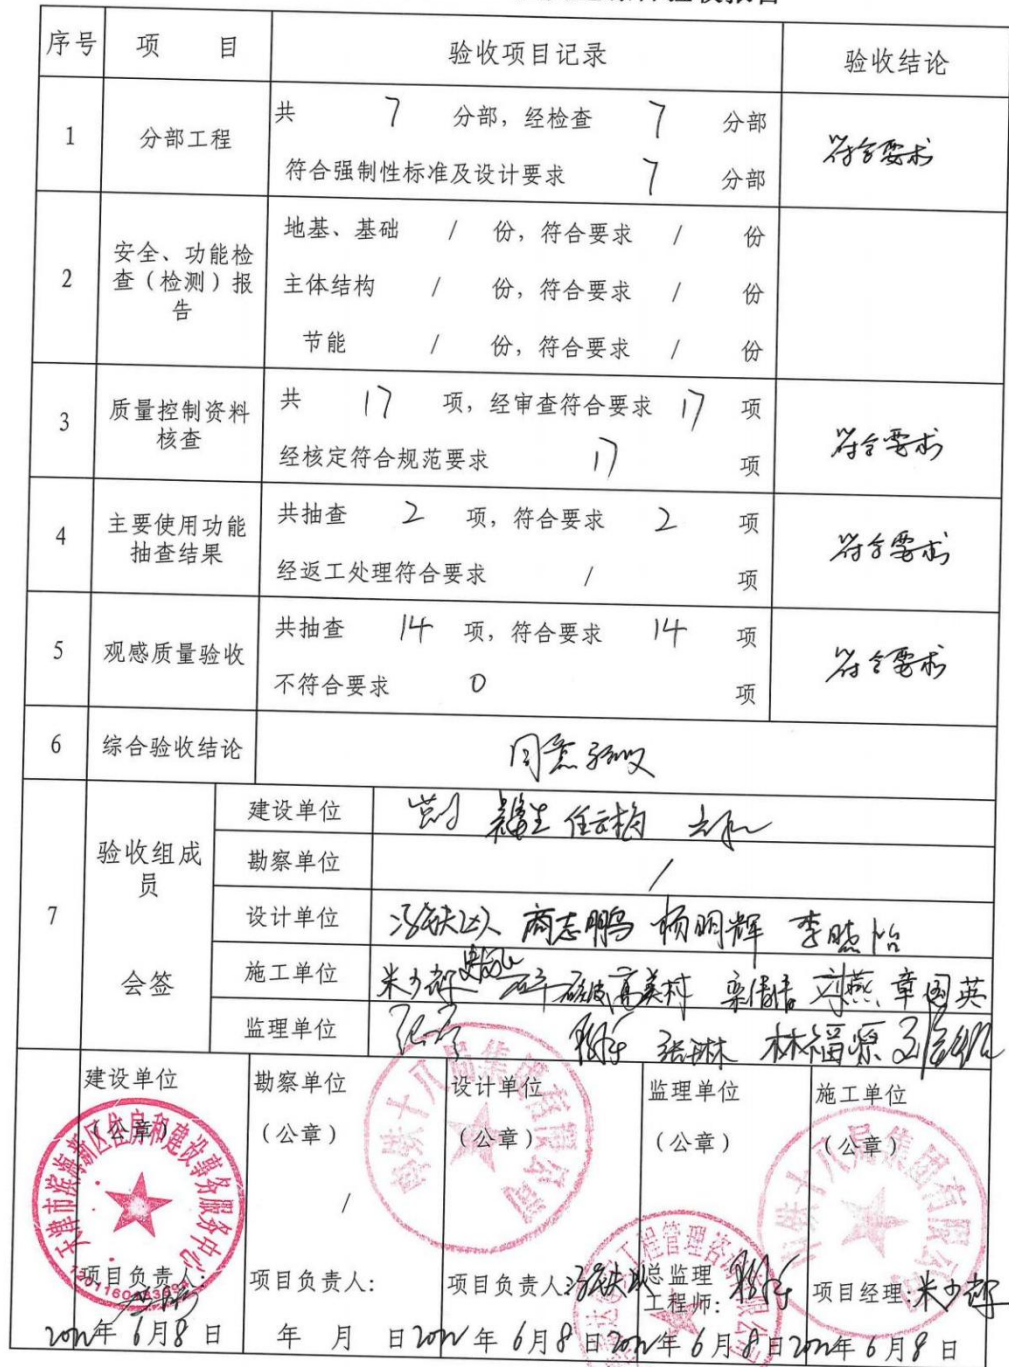 验收报告
序号 项 目 验收项目记录 验收结论
1 分部工程 共 7 分部，经检查 7 分部
符合强制性标准及设计要求 7 分部
符合要求
2 安全、功能检查（检测）报告
地基、基础 / 份，符合要求 / 份
主体结构 / 份，符合要求 / 份
节能 / 份，符合要求 / 份
3 质量控制资料核查
共 17 项，经审查符合要求 17 项
经核定符合规范要求 17 项
符合要求
4 主要使用功能抽查结果
共抽查 2 项，符合要求 2 项
经返工处理符合要求 / 项
符合要求
5 观感质量验收
共抽查 14 项，符合要求 14 项
不符合要求 0 项
符合要求
6 综合验收结论 同意验收
7 验收组成员
会签
建设单位 任云梅
勘察单位 /
设计单位 商志鹏 杨明辉 李晓怡
施工单位 高美村 刘燕 章国英
监理单位 张琳 林福
建设单位 勘察单位 设计单位 监理单位 施工单位
（公章） （公章） （公章） （公章） （公章）
天津市滨海新区住房和建设事务服务中心
十八局集团有限公司
工程管理咨询有限公司
十八局集团有限公司
/
项目负责人： 项目负责人： 项目负责人： 总监理工程师： 项目经理：
2022年6月8日 年 月 日 2022年6月8日 2022年6月8日 2022年6月8日